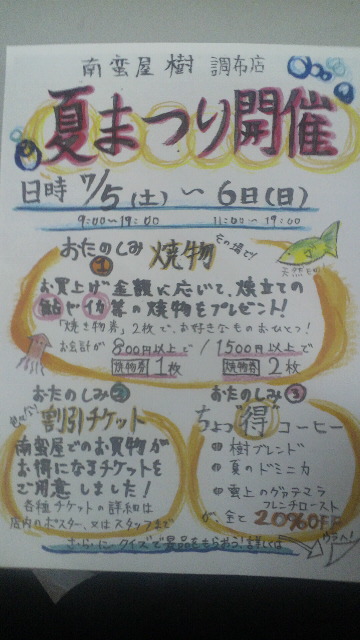 南蛮屋 樹 調布店
夏まつり開催
日時 7/5(土)〜6日(日)
9:00〜19:00 11:00〜19:00
おたのしみ① 焼物 その場で!
天然
お買上げ金額に応じて、焼立ての
鮎やイカ等の焼物をプレゼント!
「焼き物券」2枚で、お好きなものおひとつ!
お会計が 800円以上で/1500円以上で
焼物券 1枚 焼物券 2枚
おたのしみ②
割引チケット
南蛮屋でのお買物が
お得になるチケットを
ご用意しました!
各種チケットの詳細は
店内のポスター、又はスタッフまで
おたのしみ③
ちょっ得コーヒー
樹ブレンド
夏のドミニカ
雲上のグァテマラ
フレンチロースト
が、全て20%OFF
クイズで景品をもらおう!詳しくは
ウラへ!